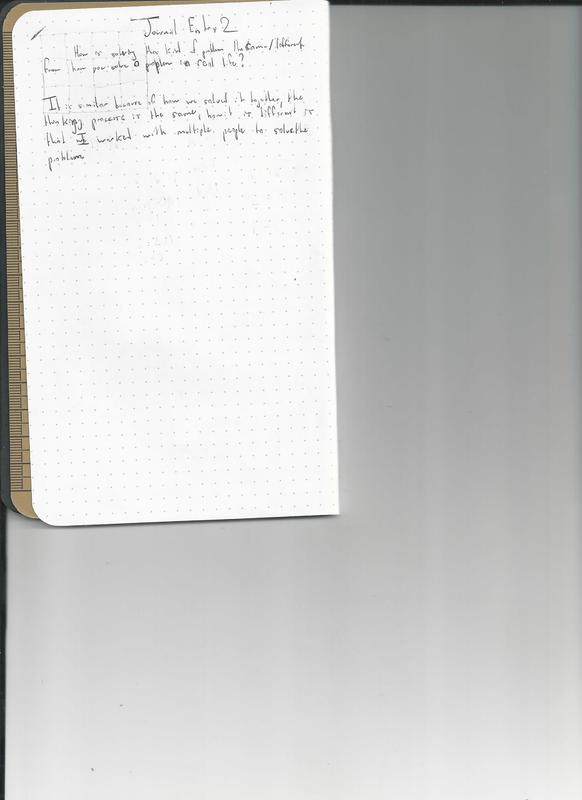 Journal Entry 2
How is solving this kind of problem the same/different
from how you solve a problem in real life?
It is similar because of how we solved it together, the
thinking process is the same, how it is different is
that I worked with multiple people to solve the
problem